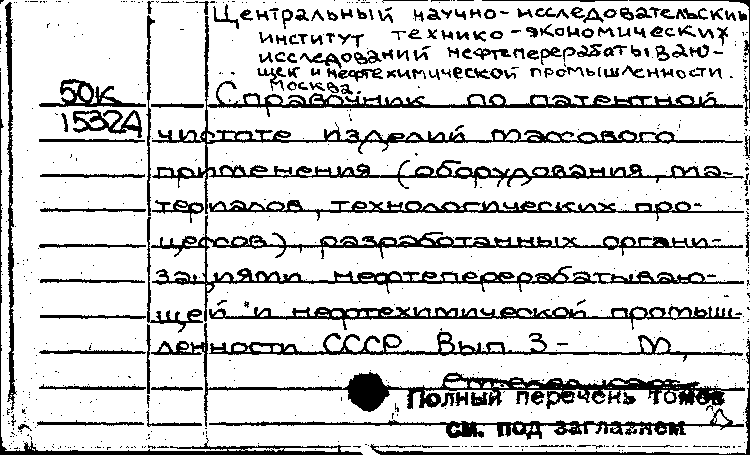 Центральный научно-исследовательский
институт технико-экономических
исследований нефтеперерабатываю-
щей и нефтехимической промышленности.
Москва.
50К
1532А
Справочник по патентной
чистоте изделий массового
применения (оборудования, ма-
териалов, технологических про-
цессов), разработанных органи-
зациями нефтеперерабатываю-
щей и нефтехимической промыш-
ленности СССР Вып. 3- М,
Полный перечень томов
см. под заглавием